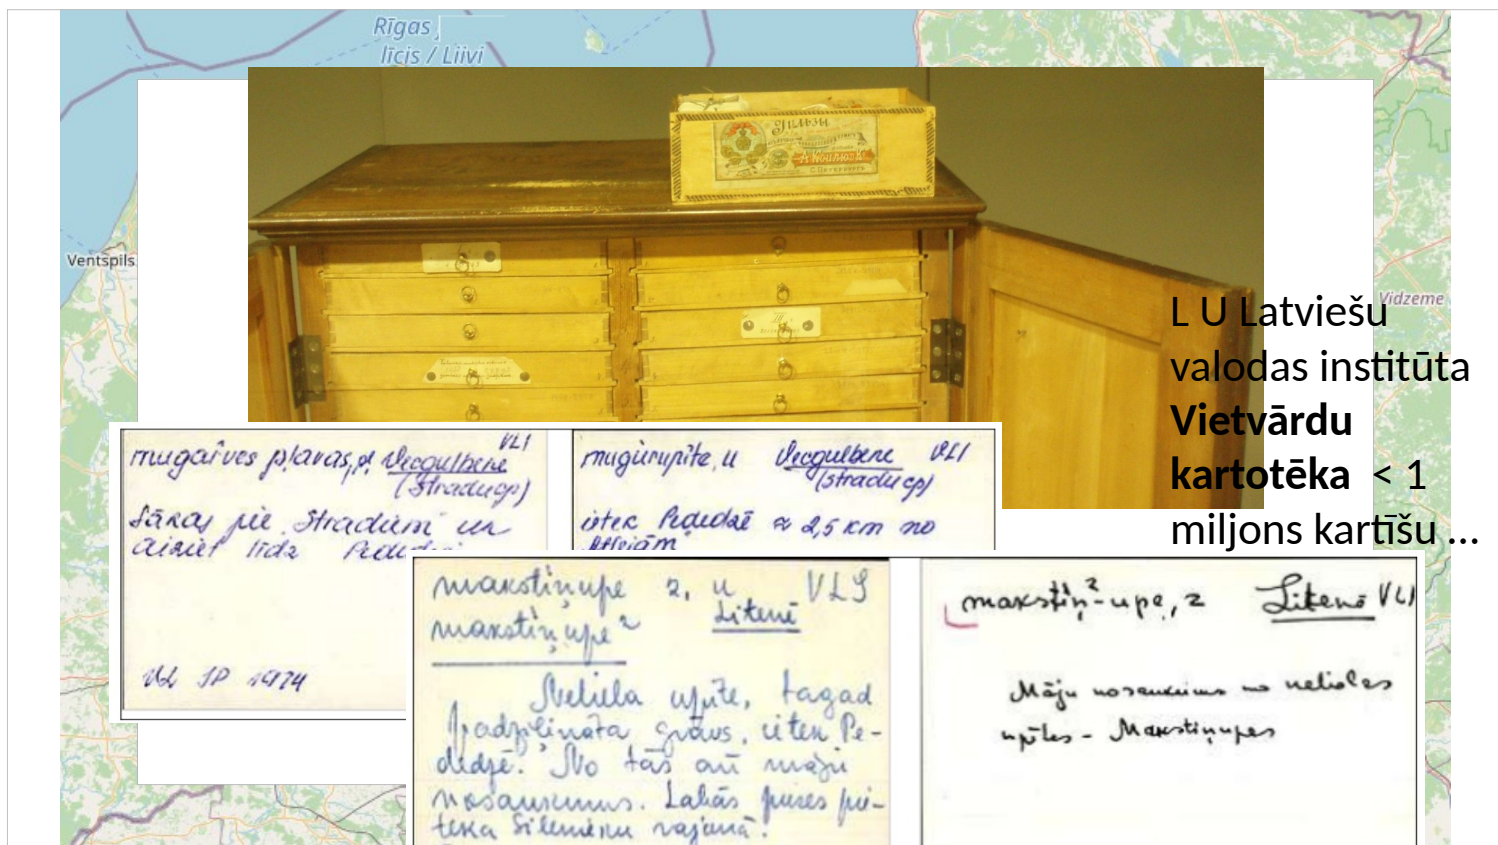 Rīgas
līcis / Liivi
Гильзы
С.Петербургъ
Ventspils
Vidzeme
L U Latviešu
valodas institūta
Vietvārdu
kartotēka < 1
miljons kartīšu ...
VLI
mugaires pļavas, pl Vecgulbene
(Stradu cp)
Sākas pie Stradiem un
aiziet līdz
VL SP 1974
mugurupīte, u Vecgulbene VLI
(Stradu cp)
ietek Pededzē ≈ 2,5 km no
makstiņupe 2, u VLI
makstiņupe² Litenē
Neliela upīte, tagad
padziļināta grāvs, ietek Pe-
dedzē. No tās arī māju
nosaukums. Labās puses pie-
teka Silenieku rajonā.
makstiņ²-upe, 2 Litenē VLI
Māju nosaukums no nelielas
upītes - Makstiņupes